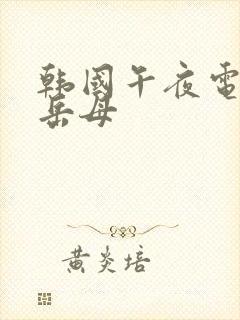 韩國午夜電
岳母
黄炎培